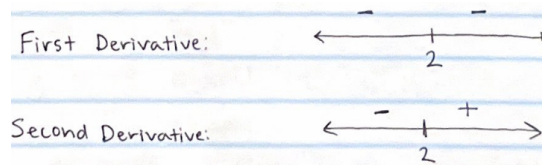 − −
First Derivative:
2
− +
Second Derivative:
2